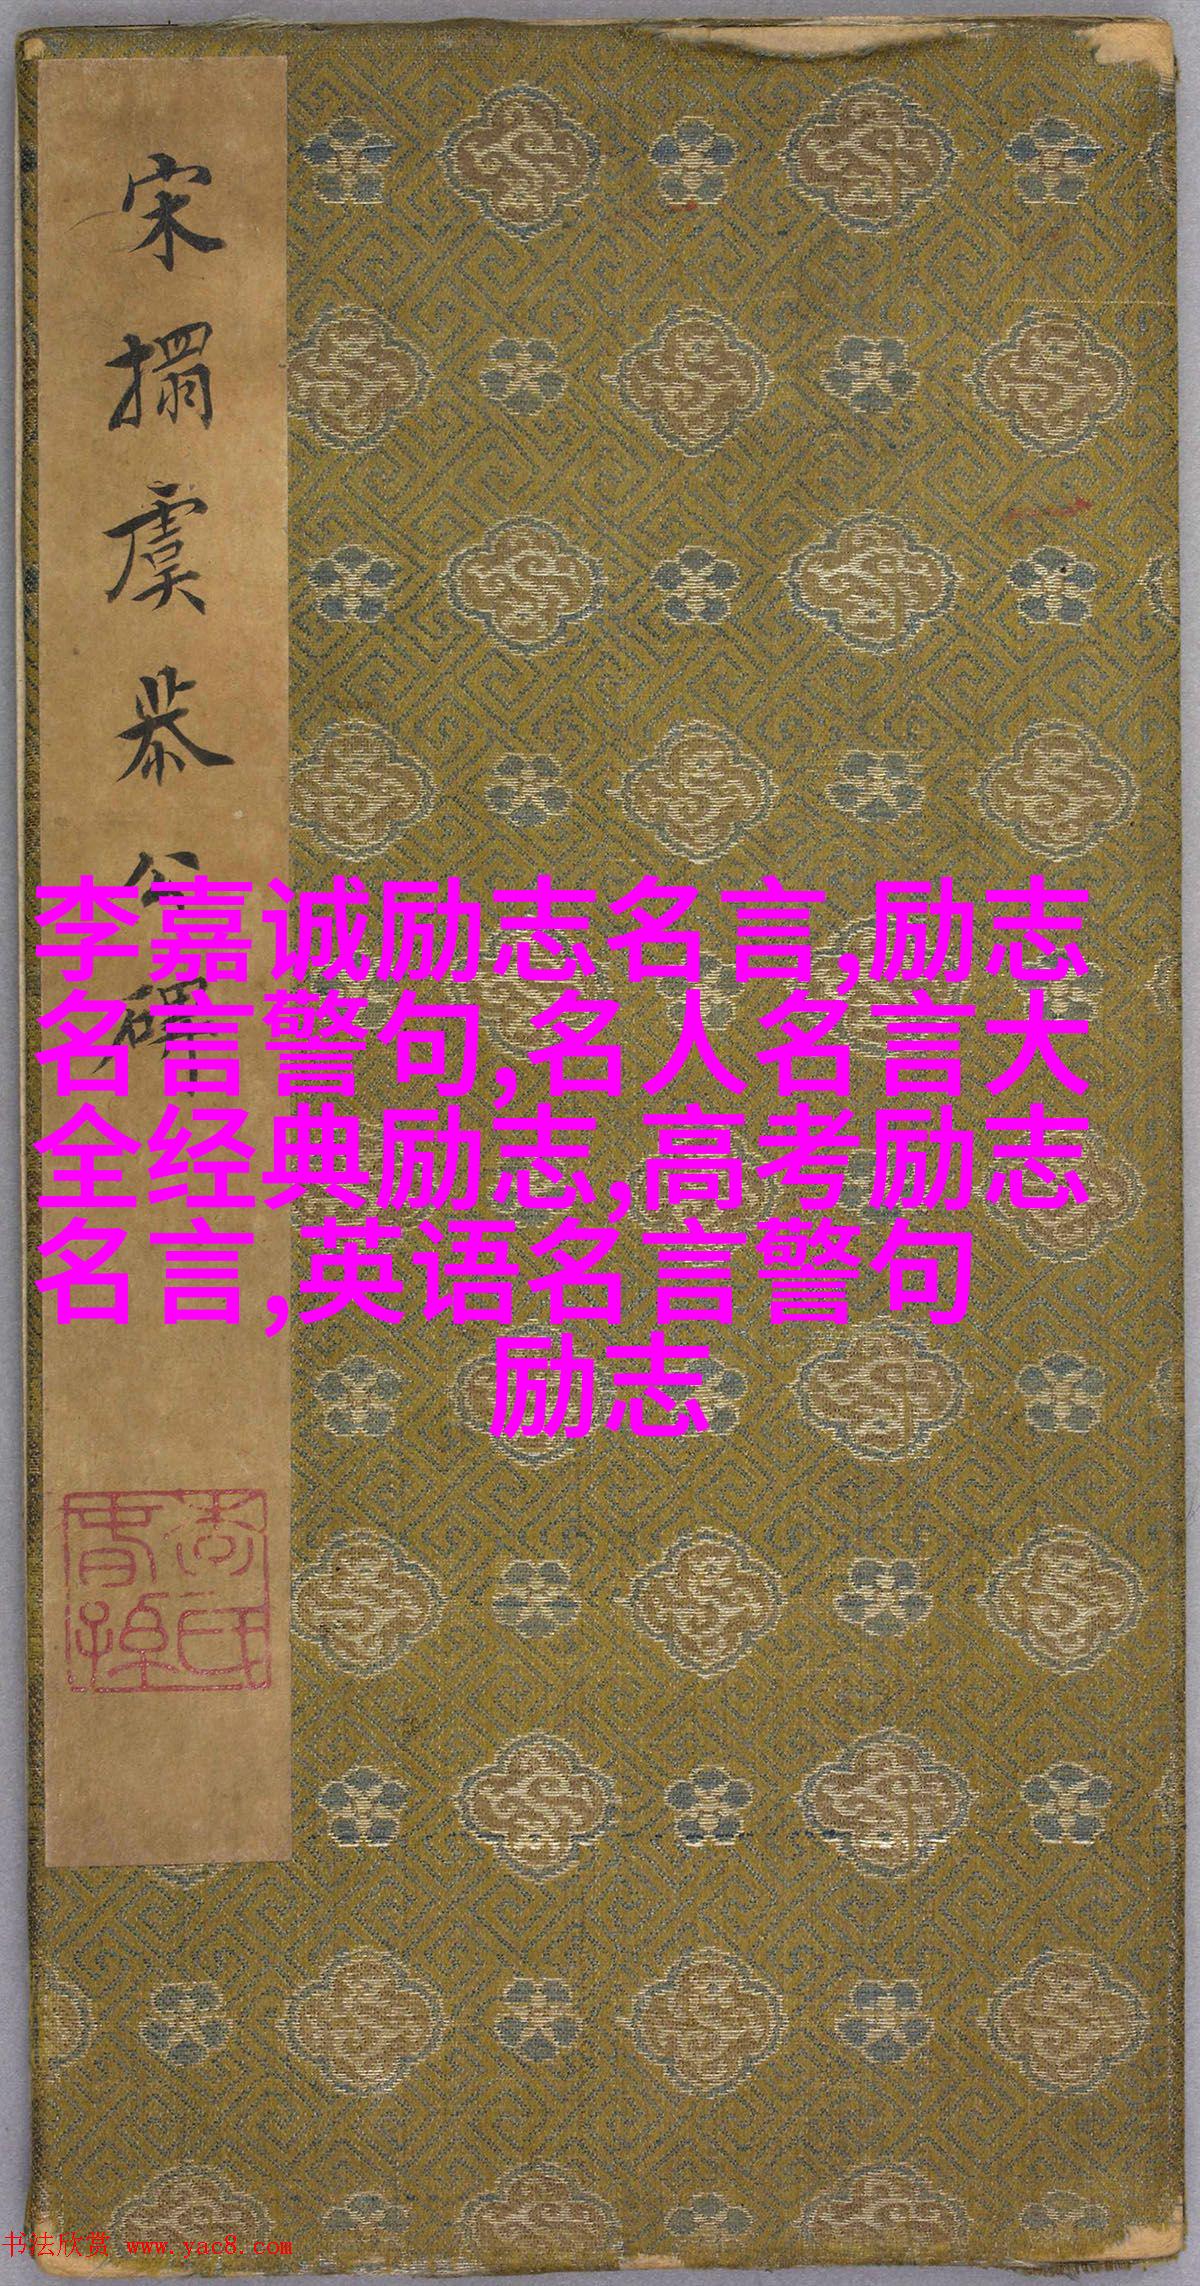 宋搨虞恭公碑
李嘉诚励志名言,励志
名言警句,名人名言大
全经典励志,高考励志
名言,英语名言警句
励志
书法欣赏 www.yac8.com